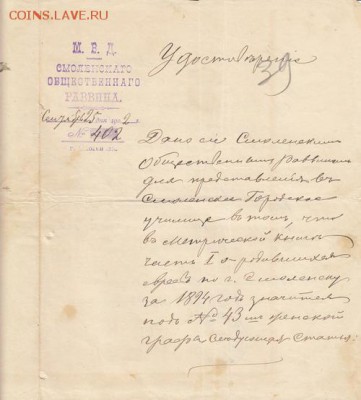 COINS.LAVE.RU
М. В. Д.
СМОЛЕНСКАГО
ОБЩЕСТВЕННАГО
РАВВИНА.
Сентября 25 дня 190 2 г.
№ 402
Удостоверение
39
Дано сіе Смоленскимъ
Общественнымъ Раввиномъ
для представленія въ
Смоленское Городское
училище въ томъ, что
въ Метрической книгѣ
часть I о родившихся
евреяхъ по г. Смоленску
за 1894 годъ значится
подъ № 43 женской
графы слѣдующая статья: